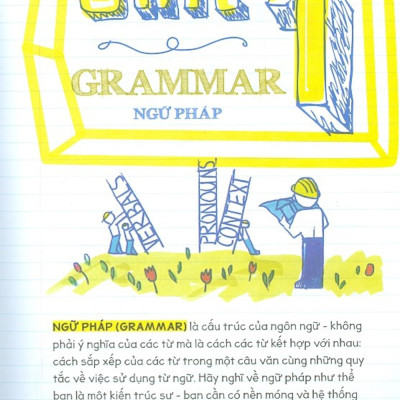 UNIT 1
GRAMMAR
NGỮ PHÁP
VERBALS
PRONOUNS
CONTEXT
NGỮ PHÁP (GRAMMAR) là cấu trúc của ngôn ngữ - không
phải ý nghĩa của các từ mà là cách các từ kết hợp với nhau:
cách sắp xếp của các từ trong một câu văn cùng những quy
tắc về việc sử dụng từ ngữ. Hãy nghĩ về ngữ pháp như thể
bạn là một kiến trúc sư - bạn cần có nền móng và hệ thống